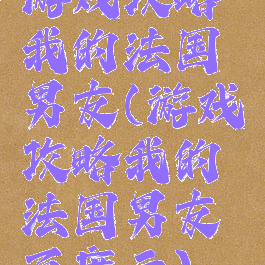 游戏攻略
我的法国
男友(游戏
攻略我的
法国男友